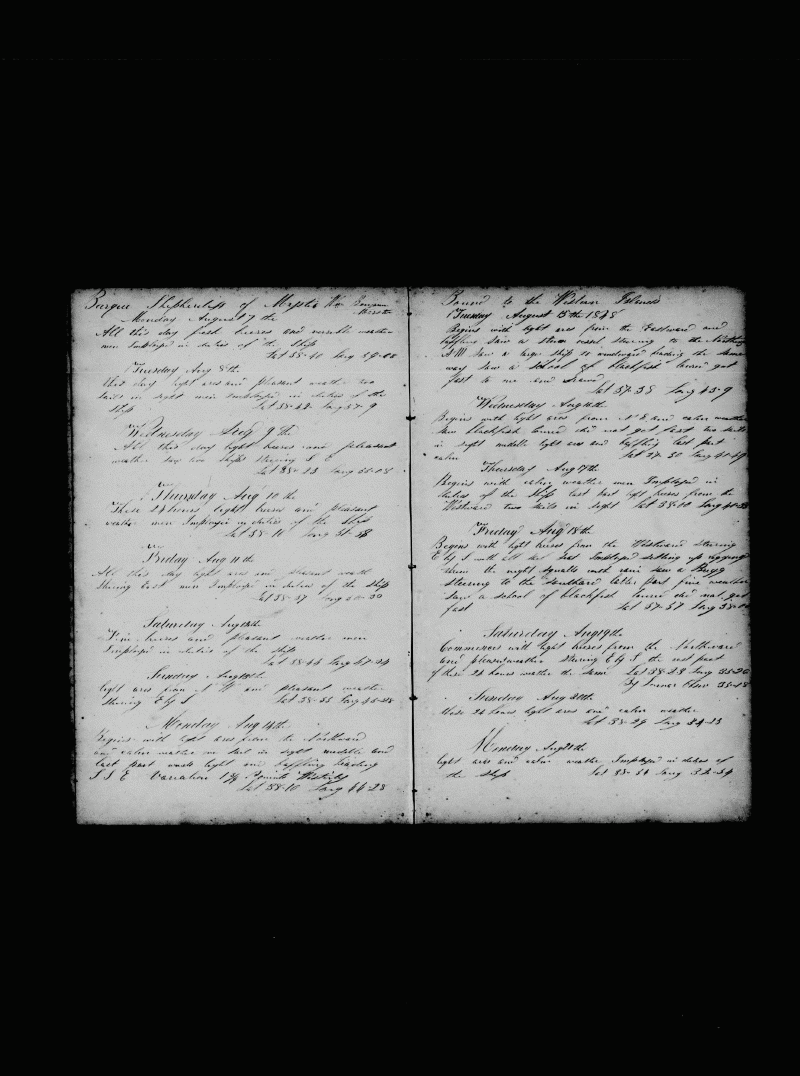 Barque Shepherdess of Mystic Wm Benjamin
Monday August 7th
All this day fresh breeses and variable weather
men Imployed in duties of the Ship
Lat 38-40 Long
Tuesday Aug 8th
this day light ares and pleasant weather two
sails in sight men imployed in duties of the
Ship Lat 38-42 Long 57-9
Wednesday Aug 9th
All this day light breeses and pleasant
weather saw two ships steering S E
Lat 38-23 Long
Thursday Aug 10th
These 24 hours light breeses and pleasant
weather men Imployed in duties of the Ship
Lat 38-16 Long 51-
Friday Aug 11th
All this day light ares and pleasant weath
steering East men Imployed in duties of the Ship
Lat 38-37 Long 50-30
Saturday Aug 12th
Fine breeses and pleasant weather men
Imployed in duties of the Ship
Lat 38-44 Long 47-24
Sunday Aug 13th
light ares from S W and pleasant weather
steering E by S Lat 38- Long 45-
Monday Aug 14th
Begins with light ares from the Northward
and calm weather one sail in sight middle and
last part winds light and baffling heading
S S E Variation 1 3/4 Points Westerly
Lat 38-10 Long 44-28
Bound to the Western Islands
Tuesday August 15th 1848
Begins with light ares from the Eastward and
baffling Saw a steering to the Northw
A M saw a large ship to windward heading the same
way saw a School of blackfish lowered got
fast to one and
Lat 37-35 Long 43-9
Wednesday Aug 16th
Begins with light ares from N E and calm weather
saw blackfish lowered did not get fast two sails
in sight middle light ares and baffling last part
calm Lat 37-50 Long 41-49
Thursday Aug 17th
Begins with calm weather men Imployed in
duties of the Ship last part light breeses from the
Westward two sails in sight Lat 38-10 Long 40-
Friday Aug 18th
Begins with light breses from the Westward steering
E by S with all sail Imployed setting up rigging
during the night squalls with rain saw a Brigg
steering to the Southard latter part fine weather
saw a school of blackfish lowered did not get
fast Lat 37-57 Long 38-
Saturday Aug 19th
Commences with light breses from the Northward
and pleasant weather steering E by S the rest part
of these 24 hours weather the same Lat 38-29 Long 35-20
By Lunar Obser 35-18
Sunday Aug 20th
these 24 hours light ares and calm weather
Lat 38-29 Long 34-23
Monday Aug 21th
light ares and calm weather Imployed in duties of
the Ship Lat 38-34 Long 32-34